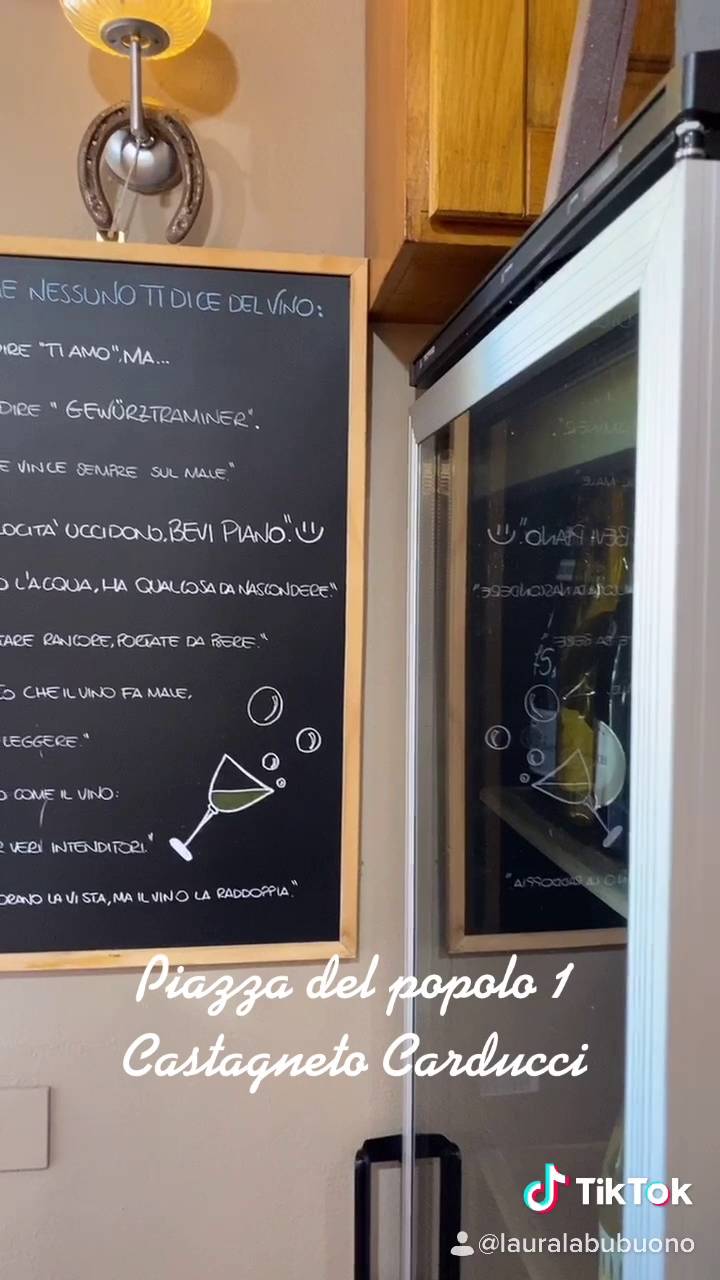 E NESSUNO TI DICE DEL VINO:
IRE "TI AMO", MA...
DIRE "GEWÜRZTRAMINER".
E VINCE SEMPRE SUL MALE."
LOCITA' UCCIDONO, BEVI PIANO."
O L'ACQUA, HA QUALCOSA DA NASCONDERE."
TARE RANCORE, PORTATE DA BERE."
TO CHE IL VINO FA MALE,
LEGGERE."
O COME IL VINO:
R VERI INTENDITORI."
ORANO LA VISTA, MA IL VINO LA RADDOPPIA."
Piazza del popolo 1
Castagneto Carducci
TikTok
@lauralabubuono